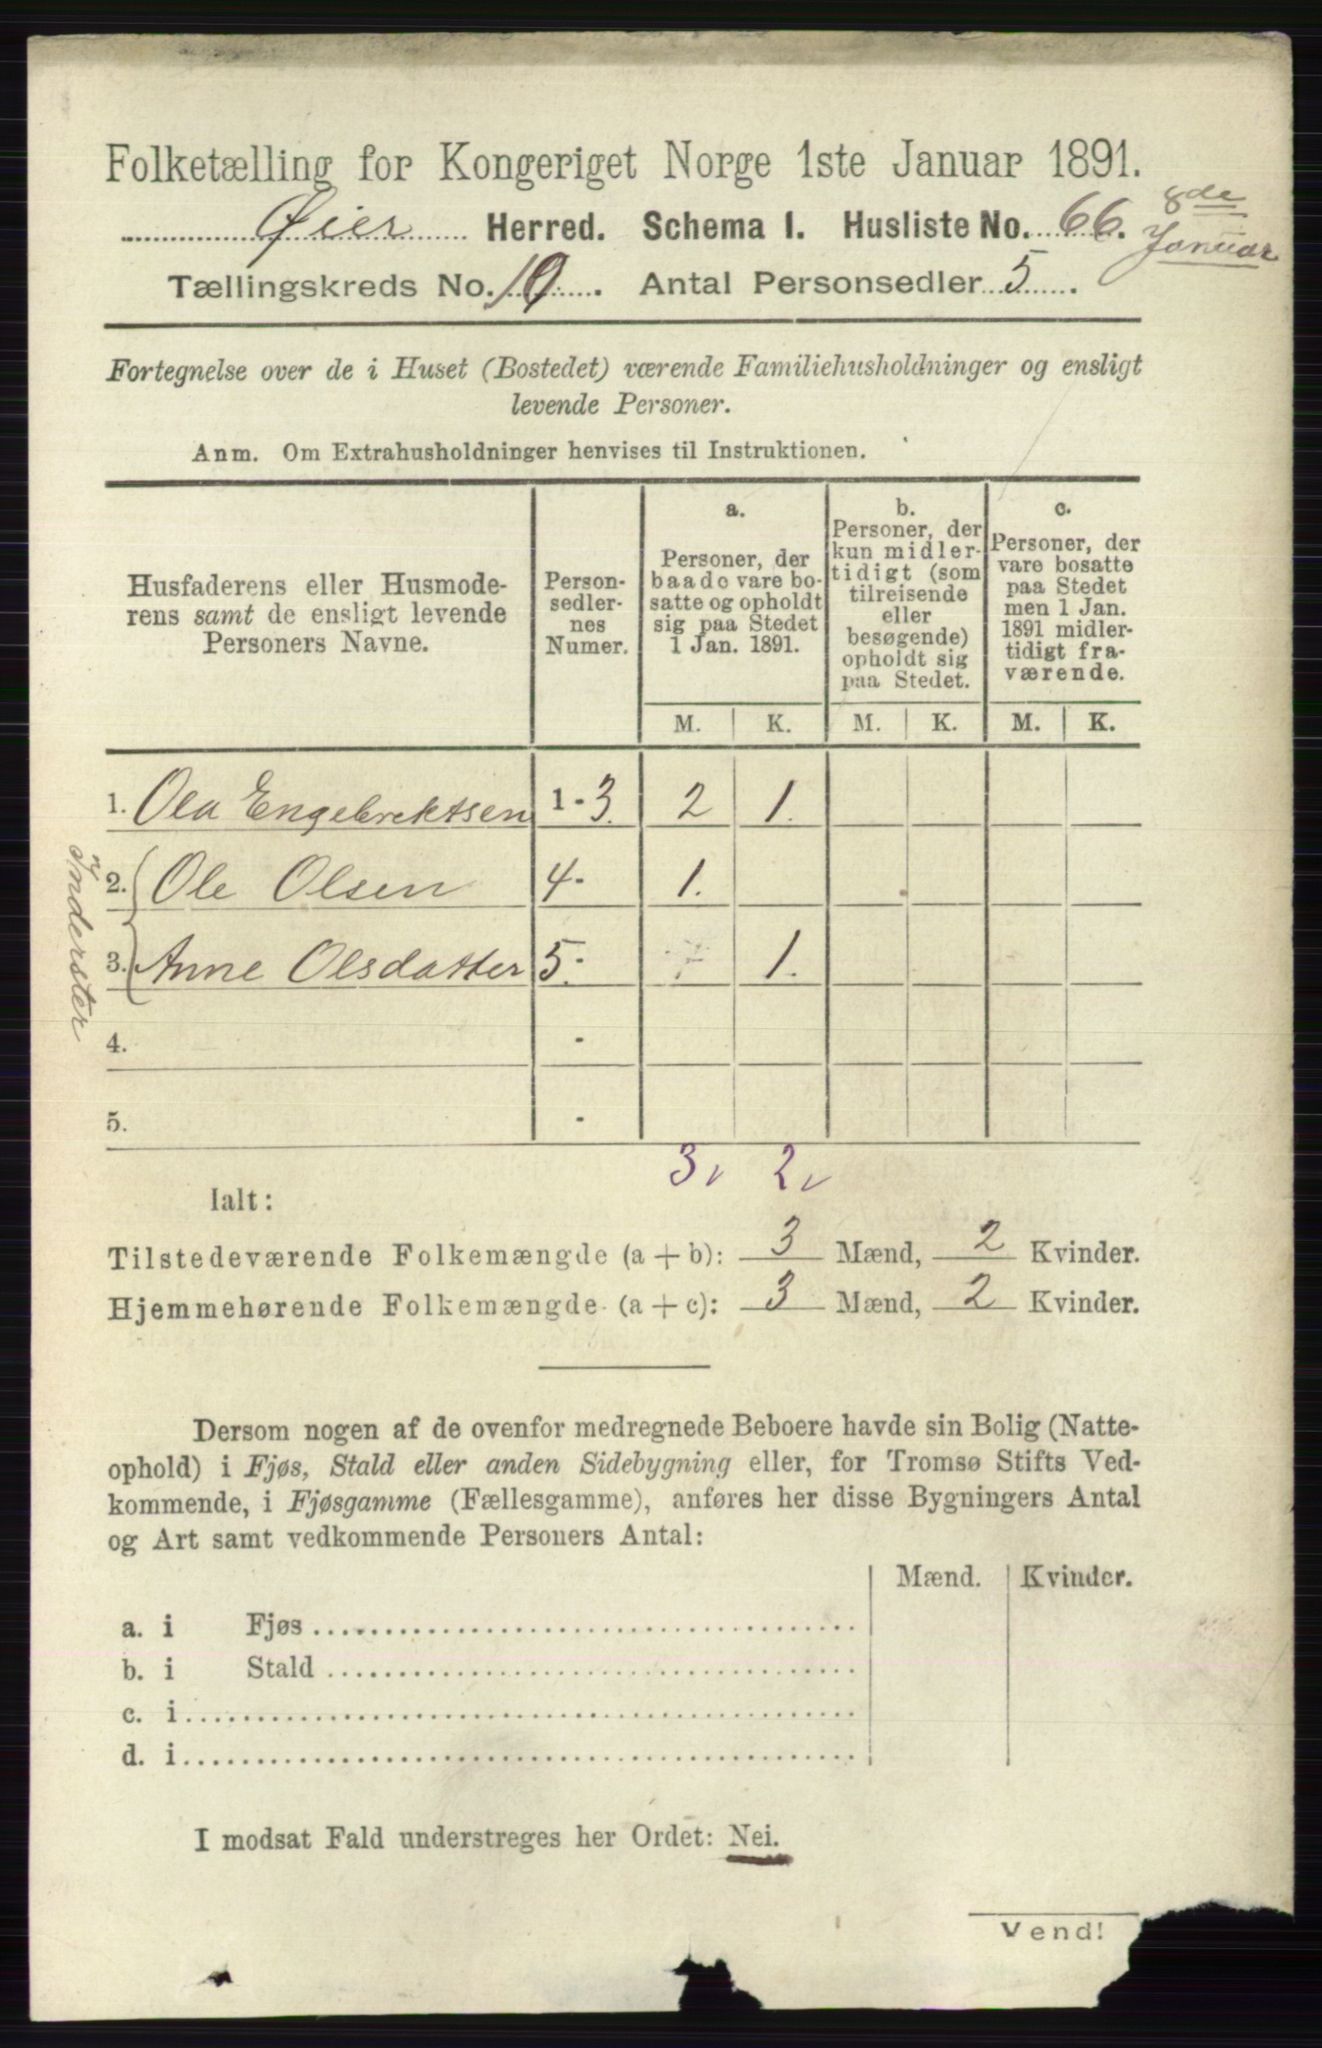 Folketælling for Kongeriget Norge 1ste Januar 1891.
8de
Januar
Øier Herred. Schema I. Husliste No. 66.
Tællingskreds No. 10. Antal Personsedler 5.
Fortegnelse over de i Huset (Bostedet) værende Familiehusholdninger og ensligt
levende Personer.
Anm. Om Extrahusholdninger henvises til Instruktionen.
Husfaderens eller Husmode-
rens samt de ensligt levende
Personers Navne.
Person-
sedler-
nes
Numer.
a.
Personer, der
baade vare bo-
satte og opholdt
sig paa Stedet
1 Jan. 1891.
b.
Personer, der
kun midler-
tidigt (som
tilreisende
eller
besøgende)
opholdt sig
paa Stedet.
c.
Personer, der
vare bosatte
paa Stedet
men 1 Jan.
1891 midler-
tidigt fra-
værende.
M. K. M. K. M. K.
1. Ola Engebrektsen 1 - 3. 2 1.
Inderster
2. Ole Olsen 4 - 1.
3. Anne Olsdatter 5. - 1.
4. -
5. -
3 v 2 v
Ialt:
Tilstedeværende Folkemængde (a + b): 3 Mænd, 2 Kvinder.
Hjemmehørende Folkemængde (a + c): 3 Mænd, 2 Kvinder.
Dersom nogen af de ovenfor medregnede Beboere havde sin Bolig (Natte-
ophold) i Fjøs, Stald eller anden Sidebygning eller, for Tromsø Stifts Ved-
kommende, i Fjøsgamme (Fællesgamme), anføres her disse Bygningers Antal
og Art samt vedkommende Personers Antal:
Mænd. Kvinder.
a. i Fjøs
b. i Stald
c. i
d. i
I modsat Fald understreges her Ordet: Nei.
Vend!